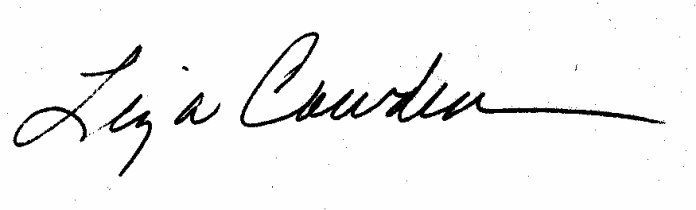 Liza Cowden